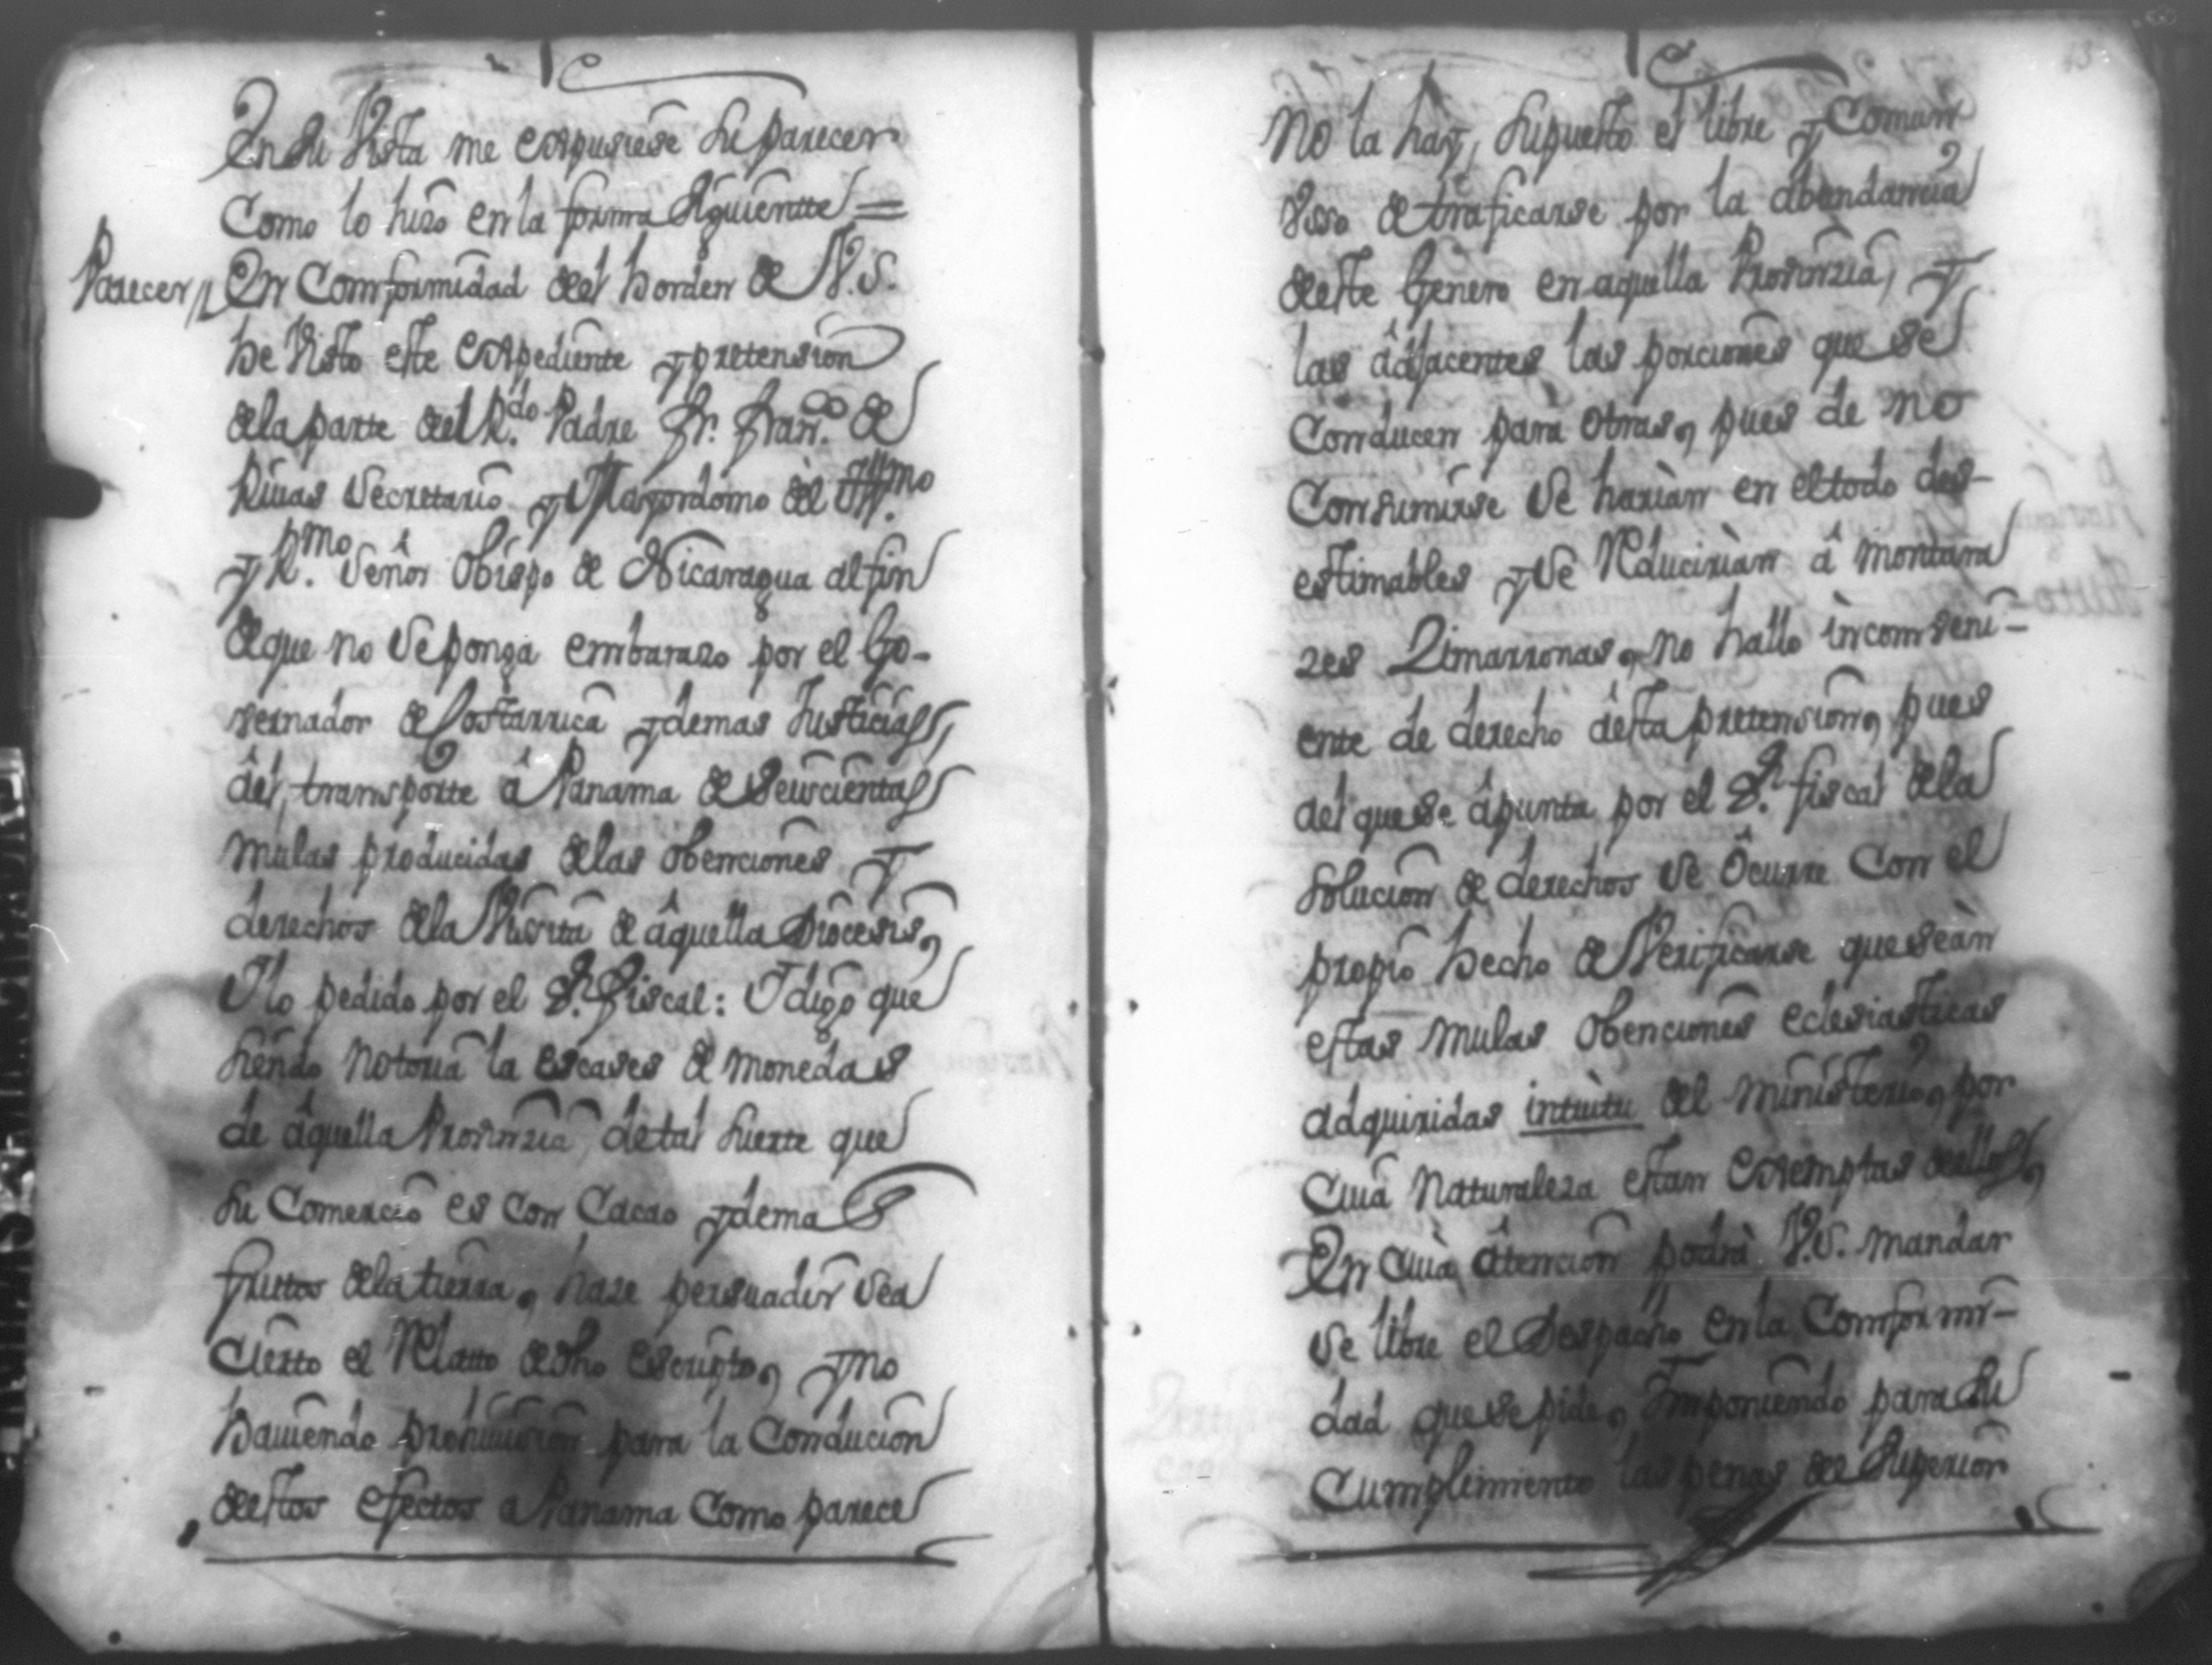 En su Vista me expusiese su parecer
Como lo hiso en la forma siguientte =
Parecer // En Comformidad del horden de V. S.
he Visto este expediente y pretension
de la parte del R.do Padre Fr. Fran.co de
Riuas Secretario y Mayordomo del Ill.mo
y R.mo Señor Obispo de Nicaragua al fin
de que no se ponga embaraso por el Go-
vernador de Costarrica y demas Justicias,
del transporte â Panama de seiscientas
mulas producidas de las obenciones y
derechos de la Visita de âquella Diocesis,
Y lo pedido por el S.r Fiscal: Y digo que
siendo notoria la escases de monedas
de âquella Provinzia, de tal suerte que
su Comercio es con Cacao y demas
fruttos de la tierra, haze persuadir sea
Cierto el Relatto de dho escripto, y no
hauiendo prohiuision para la Conducion
destos efectos a Panama Como parece
13
No la hay, supuesto el libre y Comun
Usso de traficarse por la abundancia
deste Genero en aquella Provinzia, y
las âdjacentes las porciones que se
Conducen para otras, pues de no
Consumirse se harian en el todo des-
estimables y se Reducirian â montara
zes Zimarronas, no hallo incomveni-
ente de derecho âesta pretension, pues
del que se âpunta por el S.r fiscal de la
solucion de derechos se ôcurre Con el
propio hecho de Verificarse que seàn
estas mulas obenciones eclesiasticas
adquiridas intuitu del ministerio, por
Cuia naturaleza estan exemptas dellos,
En Cuia âtencion podrà V.S. mandar
se libre el Despacho en la Comformi-
dad que se pide, Imponiendo para su
Cumplimiento las penas de Superior